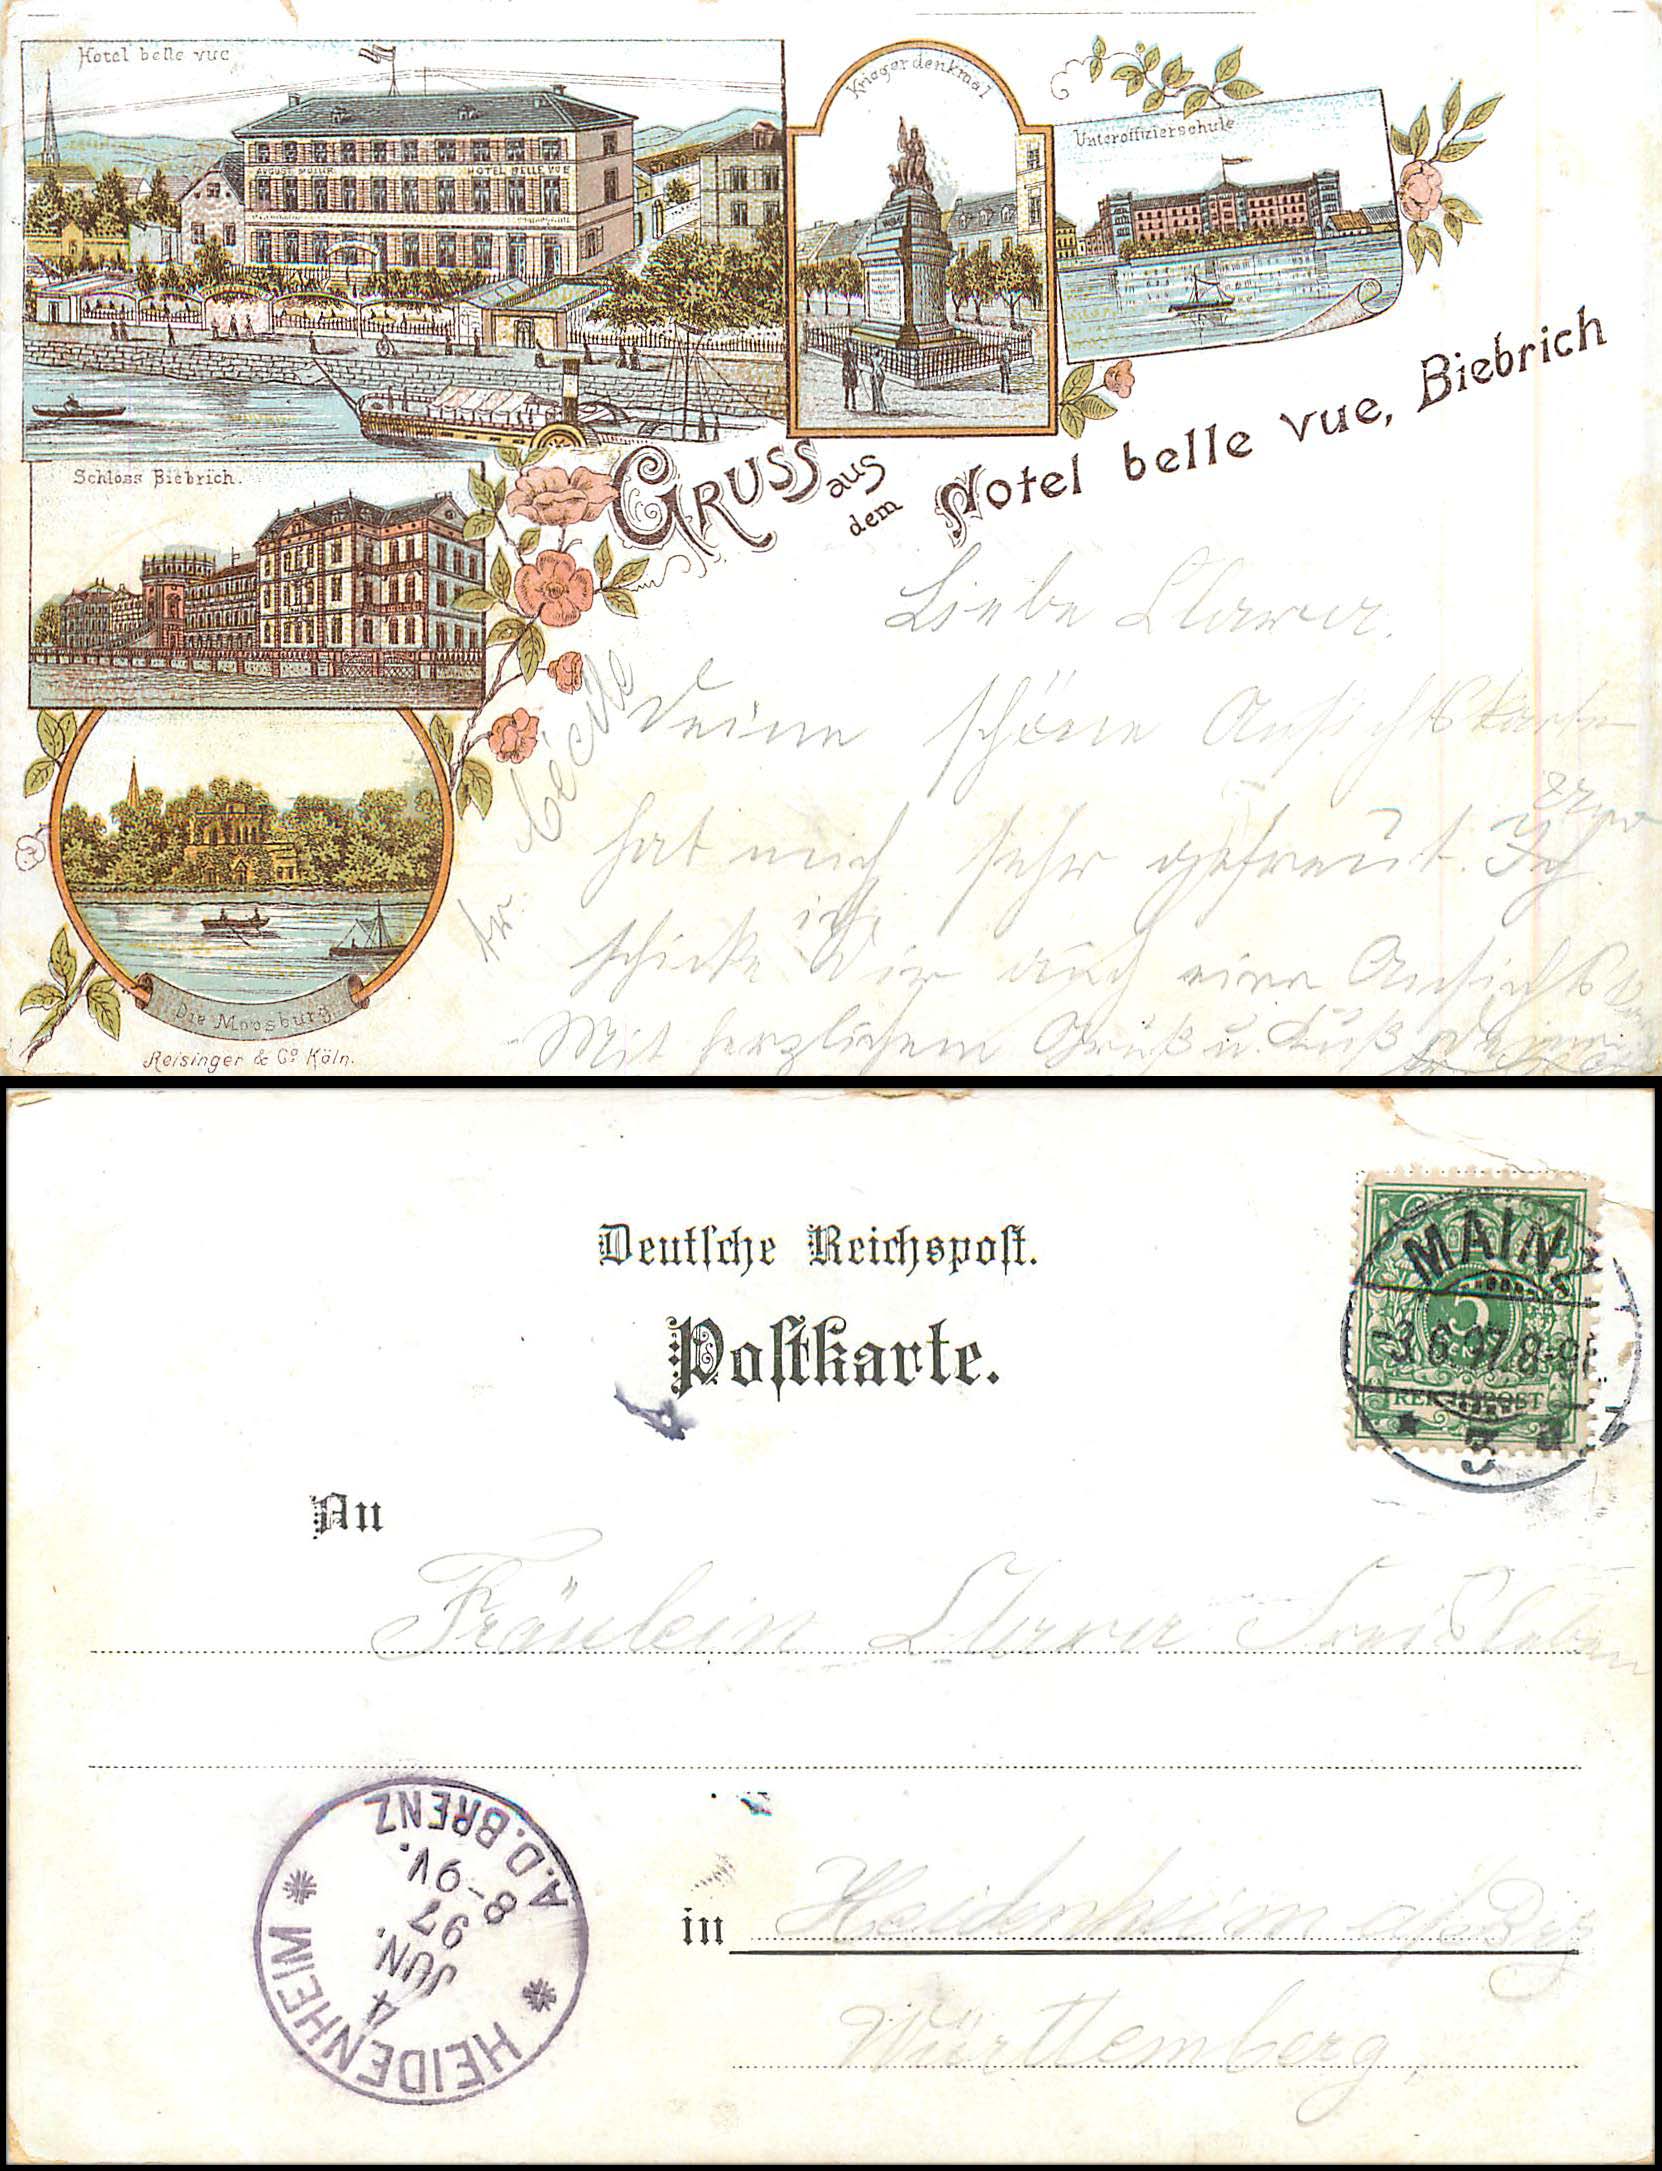 Hotel belle vue
HOTEL BELLE VUE
Kriegerdenkmal
Unteroffizierschule
Schloss Biebrich.
Die Moosburg
Reisinger & Co Köln.
GRUSS aus dem Hotel belle vue, Biebrich
Liebe Clara.
Deine schöne Ansichtskarte
hat mich sehr gefreut. Ich
schicke Dir auch eine Ansichtsk
Mit herzlichem Gruß u. Kuß Deine
Cécile
Deutsche Reichspost.
Postkarte.
MAINZ
-3.6.97.8-9
5
REICHSPOST
An
Fräulein Clara
in Heidenheim a/
Württemberg.
HEIDENHEIM
A.D.BRENZ
4
JUN.
97
8-9V.